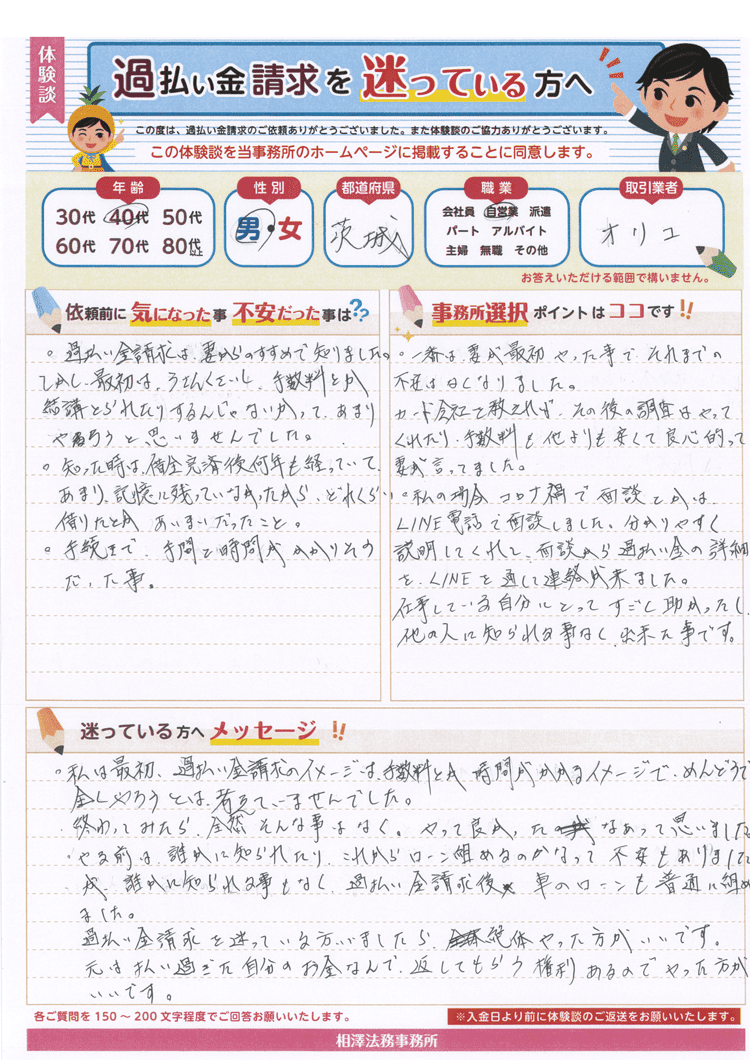 体験談
過払い金請求を迷っている方へ
この度は、過払い金請求のご依頼ありがとうございました。また体験談のご協力ありがとうございます。
この体験談を当事務所のホームページに掲載することに同意します。
年齢
30代 40代 50代
60代 70代 80代以上
性別
男・女
都道府県
茨城
職業
会社員 自営業 派遣
パート アルバイト
主婦 無職 その他
取引業者
オリコ
お答えいただける範囲で構いません。
依頼前に気になった事 不安だった事は??
。過払い金請求は、妻からのすすめで知りました。
しかし、最初は、うさんくさいし、手数料とか
結講とられたりするんじゃないかって、あまり
やろうと思いませんでした。
。知った時は、借金完済後何年も経っていて、
あまり、記憶に残っていなかったから、どれくらい
借りたとか、あいまいだったこと。
。手続まで、手間と時間がかかりそう
だった事。
事務所選択ポイントはココです!!
・一番は、妻が最初やった事で、それまでの
不安はなくなりました。
カード会社で教えれず、その後の調査はやって
くれたり、手数料も他よりも安くて良心的って
妻が言ってました。
・私の場合、コロナ禍で面談とかは、
LINE電話で面談しました。分かりやすく
説明してくれて、面談から過払い金の詳細
を、LINEを通して連絡が来ました。
仕事している自分にとってすごく助かったし、
他の人に知られる事なく、出来た事です。
迷っている方へメッセージ!!
。私は最初、過払い金請求のイメージは、手数料とか、時間がかかるイメージで、めんどうで
全くやろうとは、考えていませんでした。
終わってみたら、全然そんな事はなく。やって良かったなあって思いました
・やる前は、誰かに知られたり、これからローン組めるのかなって不安もありました
が、誰かに知られる事もなく、過払い金請求後、車のローンも普通に組め
ました。
過払い金請求を迷っている方いましたら、絶体やった方がいいです。
元は払い過ぎた自分のお金なんで、返してもらう権利あるのでやった方が
いいです。
各ご質問を150~200文字程度でご回答お願いいたします。
※入金日より前に体験談のご返送をお願いいたします。
相澤法務事務所